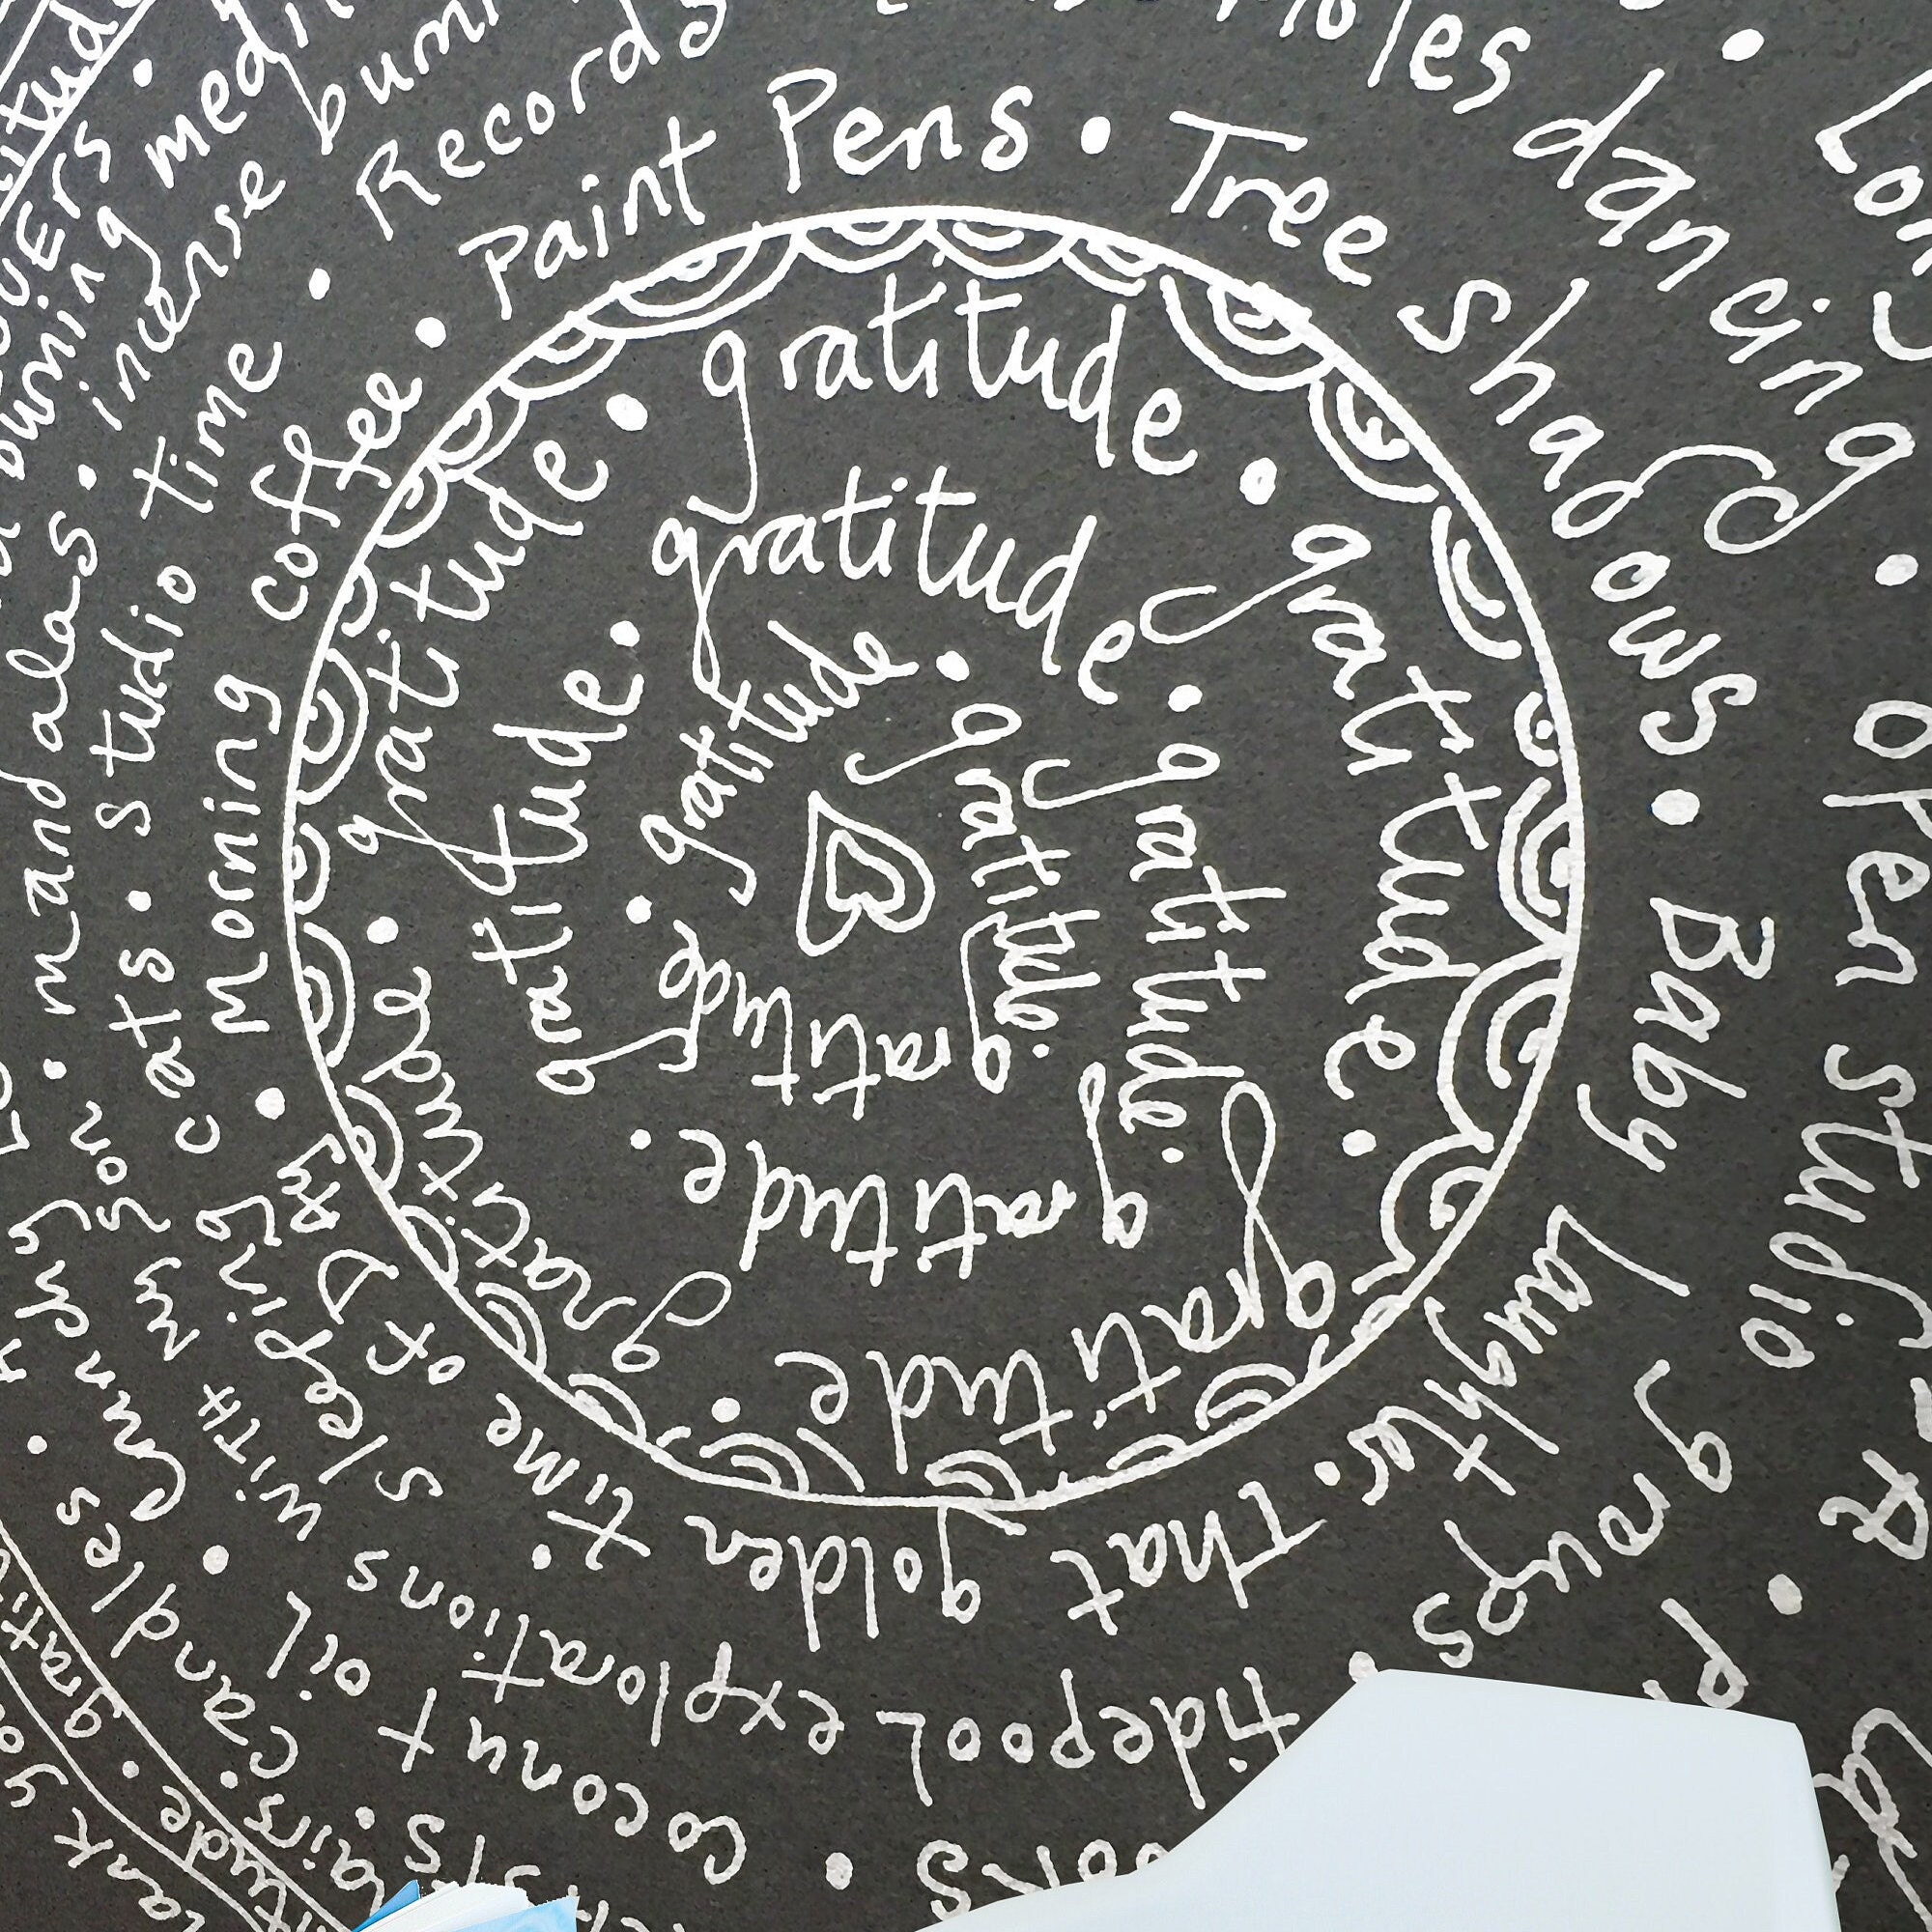 gratitude • gratitude • gratitude •
gratitude • gratitude • gratitude • gratitude •
gratitude • gratitude • gratitude • gratitude • gratitude •
Paint Pens • Tree Shadows • Baby Laughter • that golden time of Day • Morning coffee •
Records
dancing •
open studio
groups
tidepool explorations • sleeping cats • studio time •
• coconut oil • with my son • mandalas • incense
candles • crunchy
burning
stairs •
gratitude •